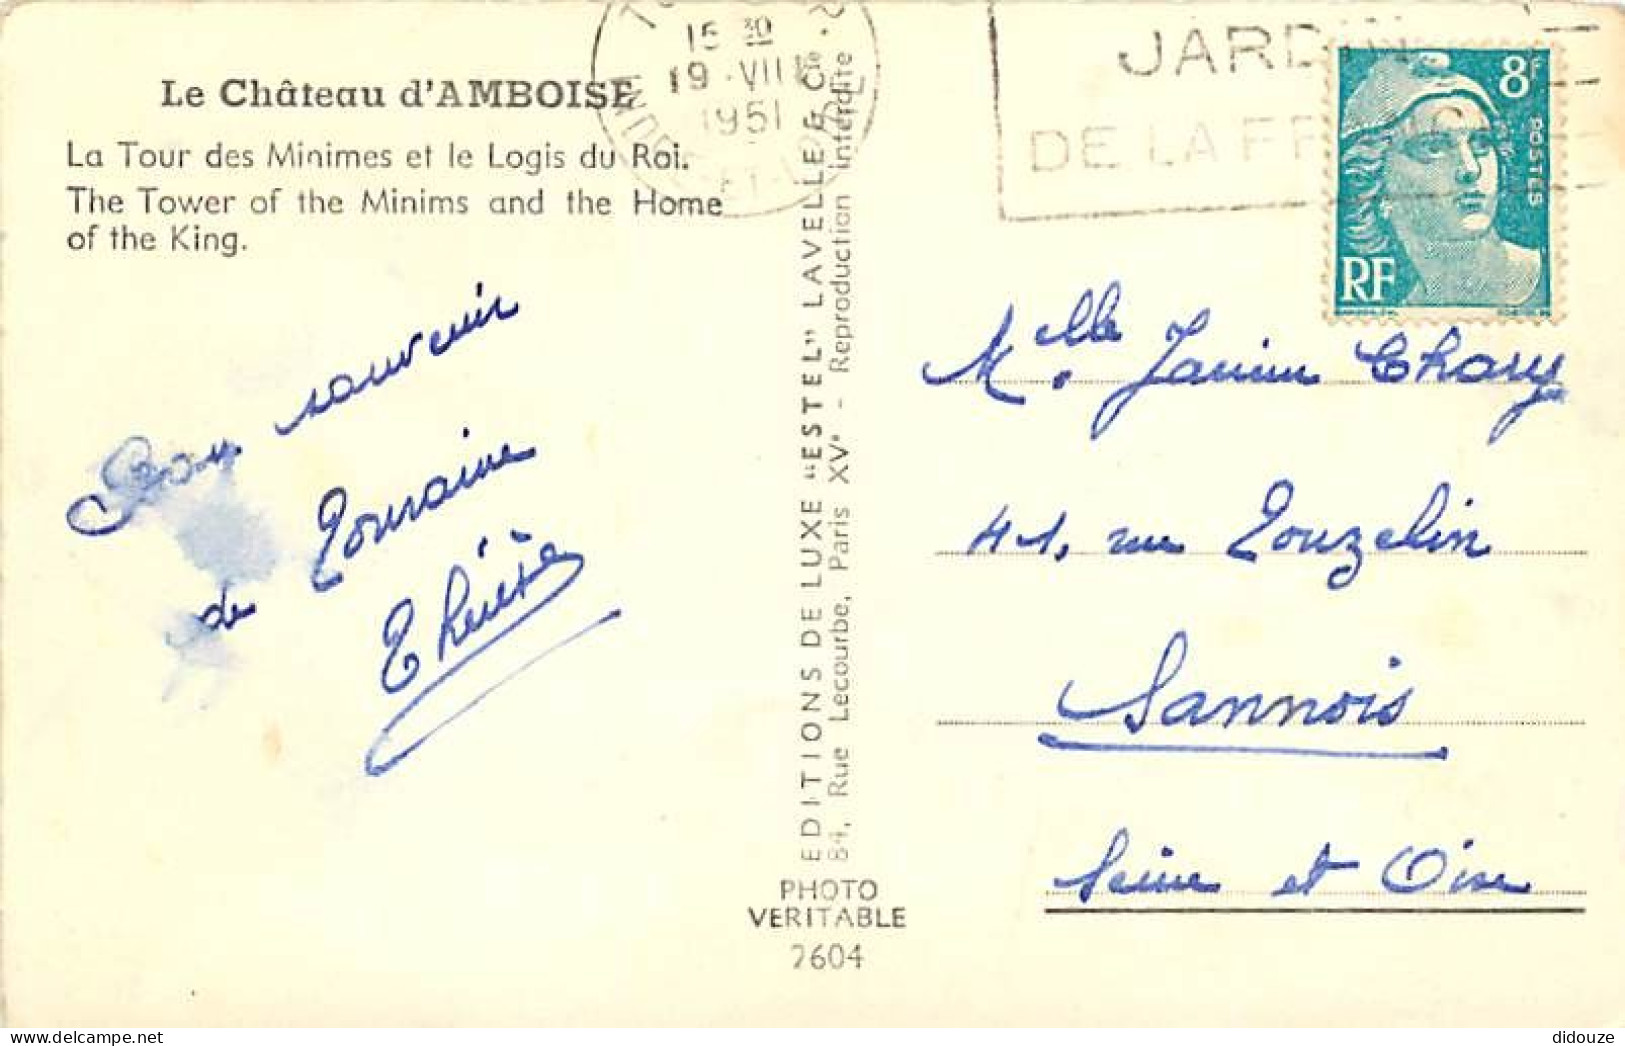 Le Château d'AMBOISE
La Tour des Minimes et le Logis du Roi.
The Tower of the Minims and the Home
of the King.
15 30
19 VII
1951
JARDIN
DE LA FRANCE
8F
POSTES
RF
Bon souvenir
de Touraine
Thérèse
EDITIONS DE LUXE "ESTEL" LAVELLE & Cie
84, Rue Lecourbe, Paris XVe - Reproduction interdite
PHOTO
VERITABLE
2604
Melle. Janine Chouy
41, rue Touzelin
Sannois
Seine et Oise
didouze